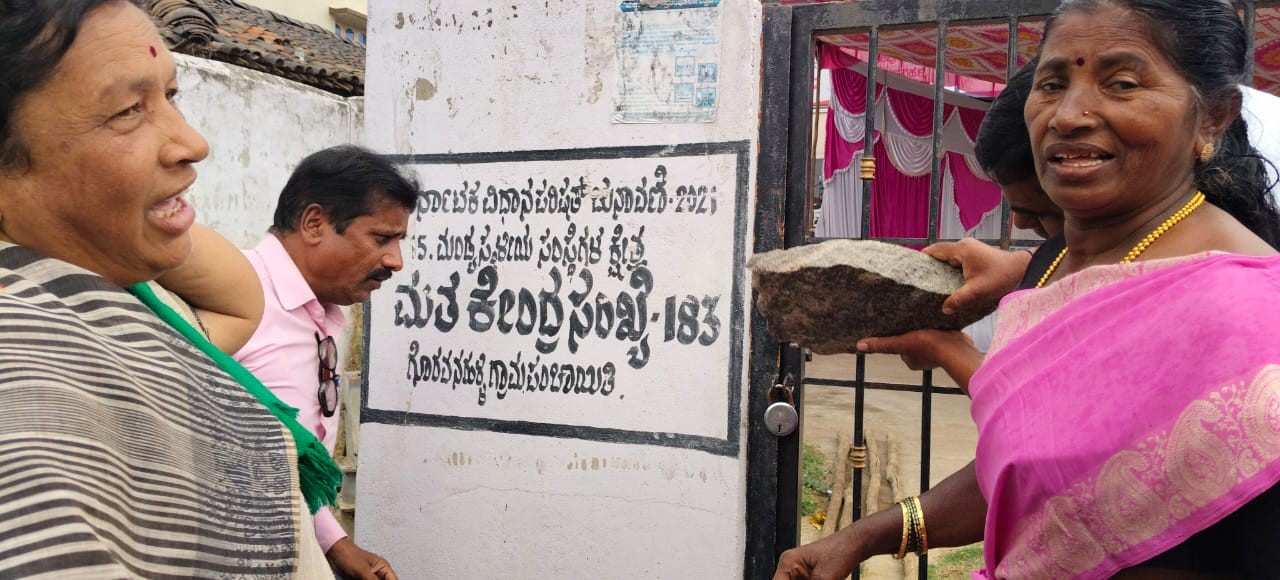 ರ್ನಾಟಕ ವಿಧಾನ ಪರಿಷತ್ ಚುನಾವಣೆ-2021
5. ಮಂಡ್ಯ ಸ್ಥಳೀಯ ಸಂಸ್ಥೆಗಳ ಕ್ಷೇತ್ರ
ಮತ ಕೇಂದ್ರ ಸಂಖ್ಯೆ-183
ಗೊರವನಹಳ್ಳಿ ಗ್ರಾಮ ಪಂಚಾಯಿತಿ.